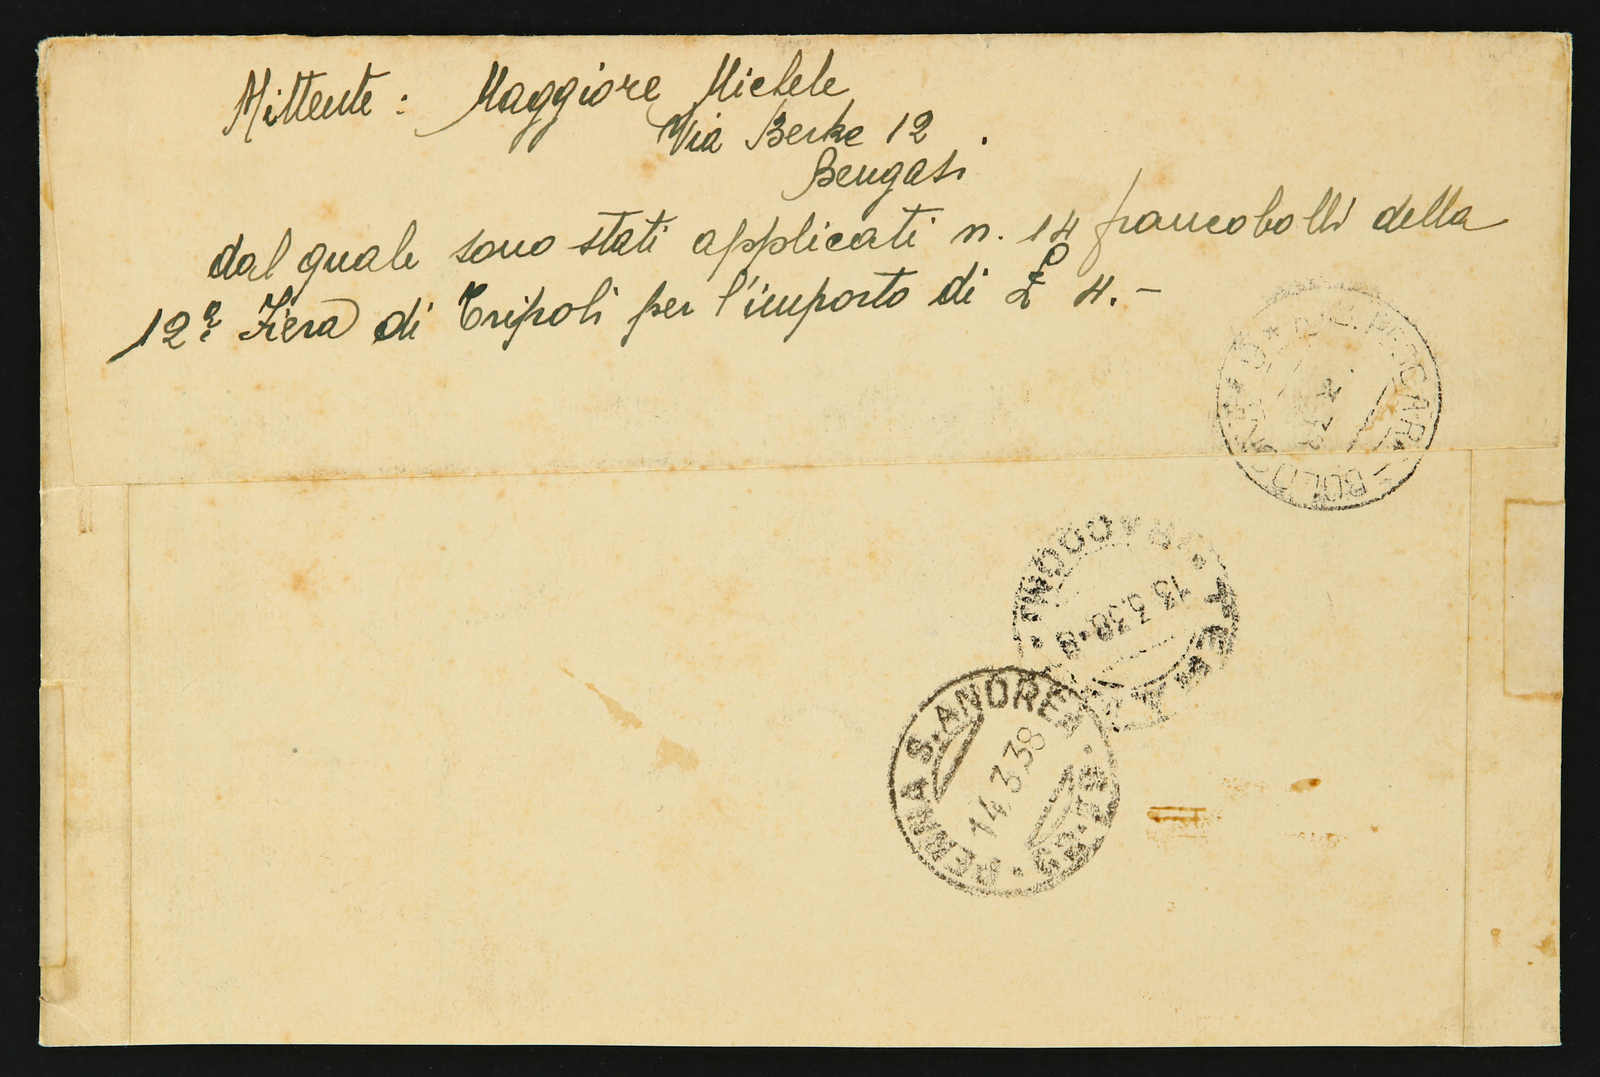 Mittente: Maggiore Michele
Via Berke 12
Bengasi.
dal quale sono stati applicati n. 14 francobolli della
12ª Fiera di Tripoli per l'importo di £ 4.-
BOLOGNA
13 3.38 · 8
PENNA S. ANDREA
14.3.38